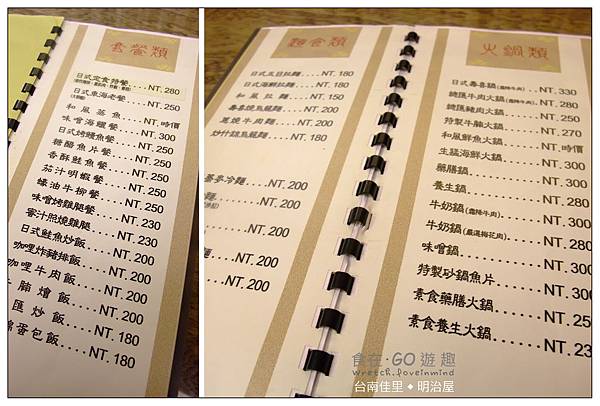 套餐類
日式定食特餐....NT. 280
日式東海老餐....NT. 250
和風蒸魚....NT.時價
味噌海鰻餐....NT. 300
日式烤鰻魚餐....NT. 250
糖醋魚片餐....NT. 250
香酥鮭魚餐....NT. 250
茄汁明蝦餐....NT. 250
蠔油牛柳餐....NT. 250
味噌烤雞腿餐....NT. 230
蜜汁照燒雞腿....NT. 230
日式鮭魚炒飯....NT. 200
咖哩炸豬排飯....NT. 200
咖哩牛肉飯....NT. 200
牛腩燴飯....NT. 200
匯炒飯....NT. 180
蛋包飯....NT. 180
麵食類
日式豆豆拉麵....NT. 180
日式海鮮拉麵....NT. 180
和風拉麵....NT. 150
壽喜燒烏龍麵....NT. 200
蔥燒牛肉麵....NT. 200
炒什錦烏龍麵....NT. 180
蕎麥冷麵....NT. 200
NT. 200
NT. 200
麵....NT. 200
火鍋類
日式壽喜鍋(霜降牛肉)....NT. 330
總匯牛肉火鍋(霜降牛肉)..NT. 280
總匯豬肉火鍋....NT. 250
特製牛腩火鍋....NT. 270
和風鮮魚火鍋....NT.時價
生猛海鮮火鍋....NT. 300
藥膳鍋....NT. 300
養生鍋....NT. 280
牛奶鍋(霜降牛肉)....NT. 300
牛奶鍋(嚴選梅花肉)....NT. 280
味噌鍋....NT. 300
特製砂鍋魚片....NT. 300
素食藥膳火鍋....NT. 250
素食養生火鍋....NT. 23
食在·GO遊趣
wretch.loveinmind
台南佳里◆明治屋